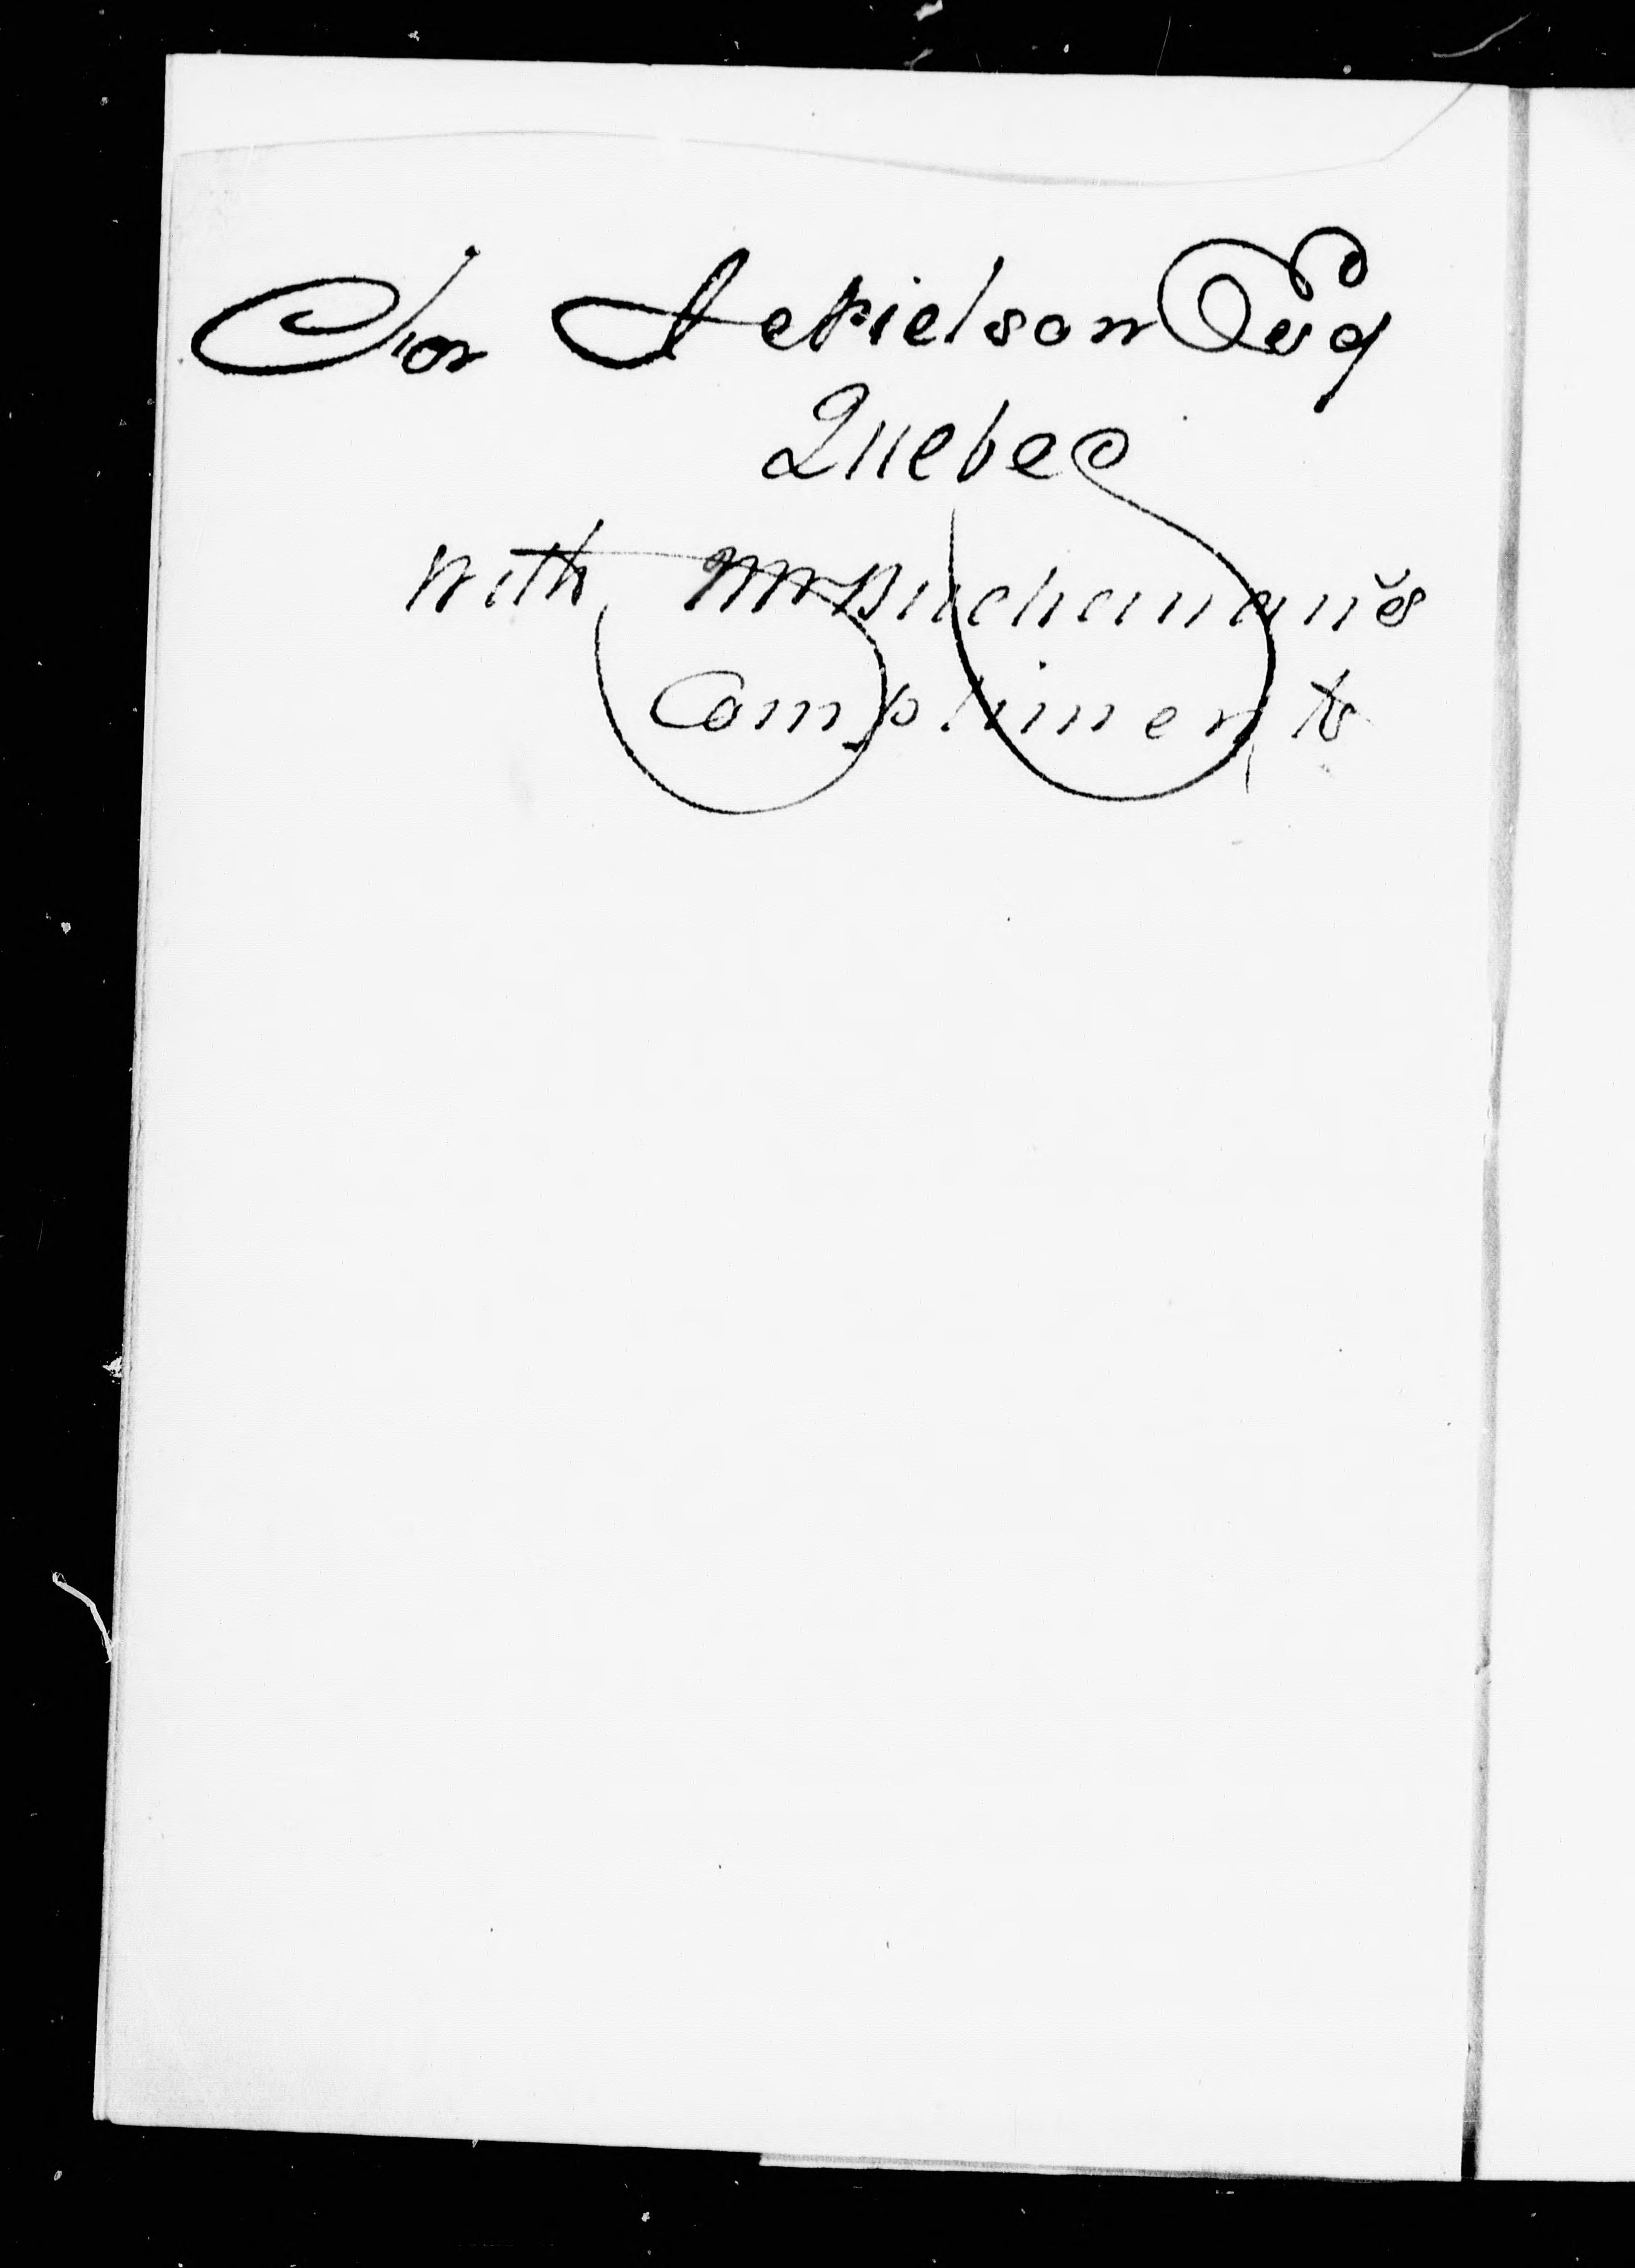 For A Nielson Esq
Quebec
with Mr Buchanan's
Compliments